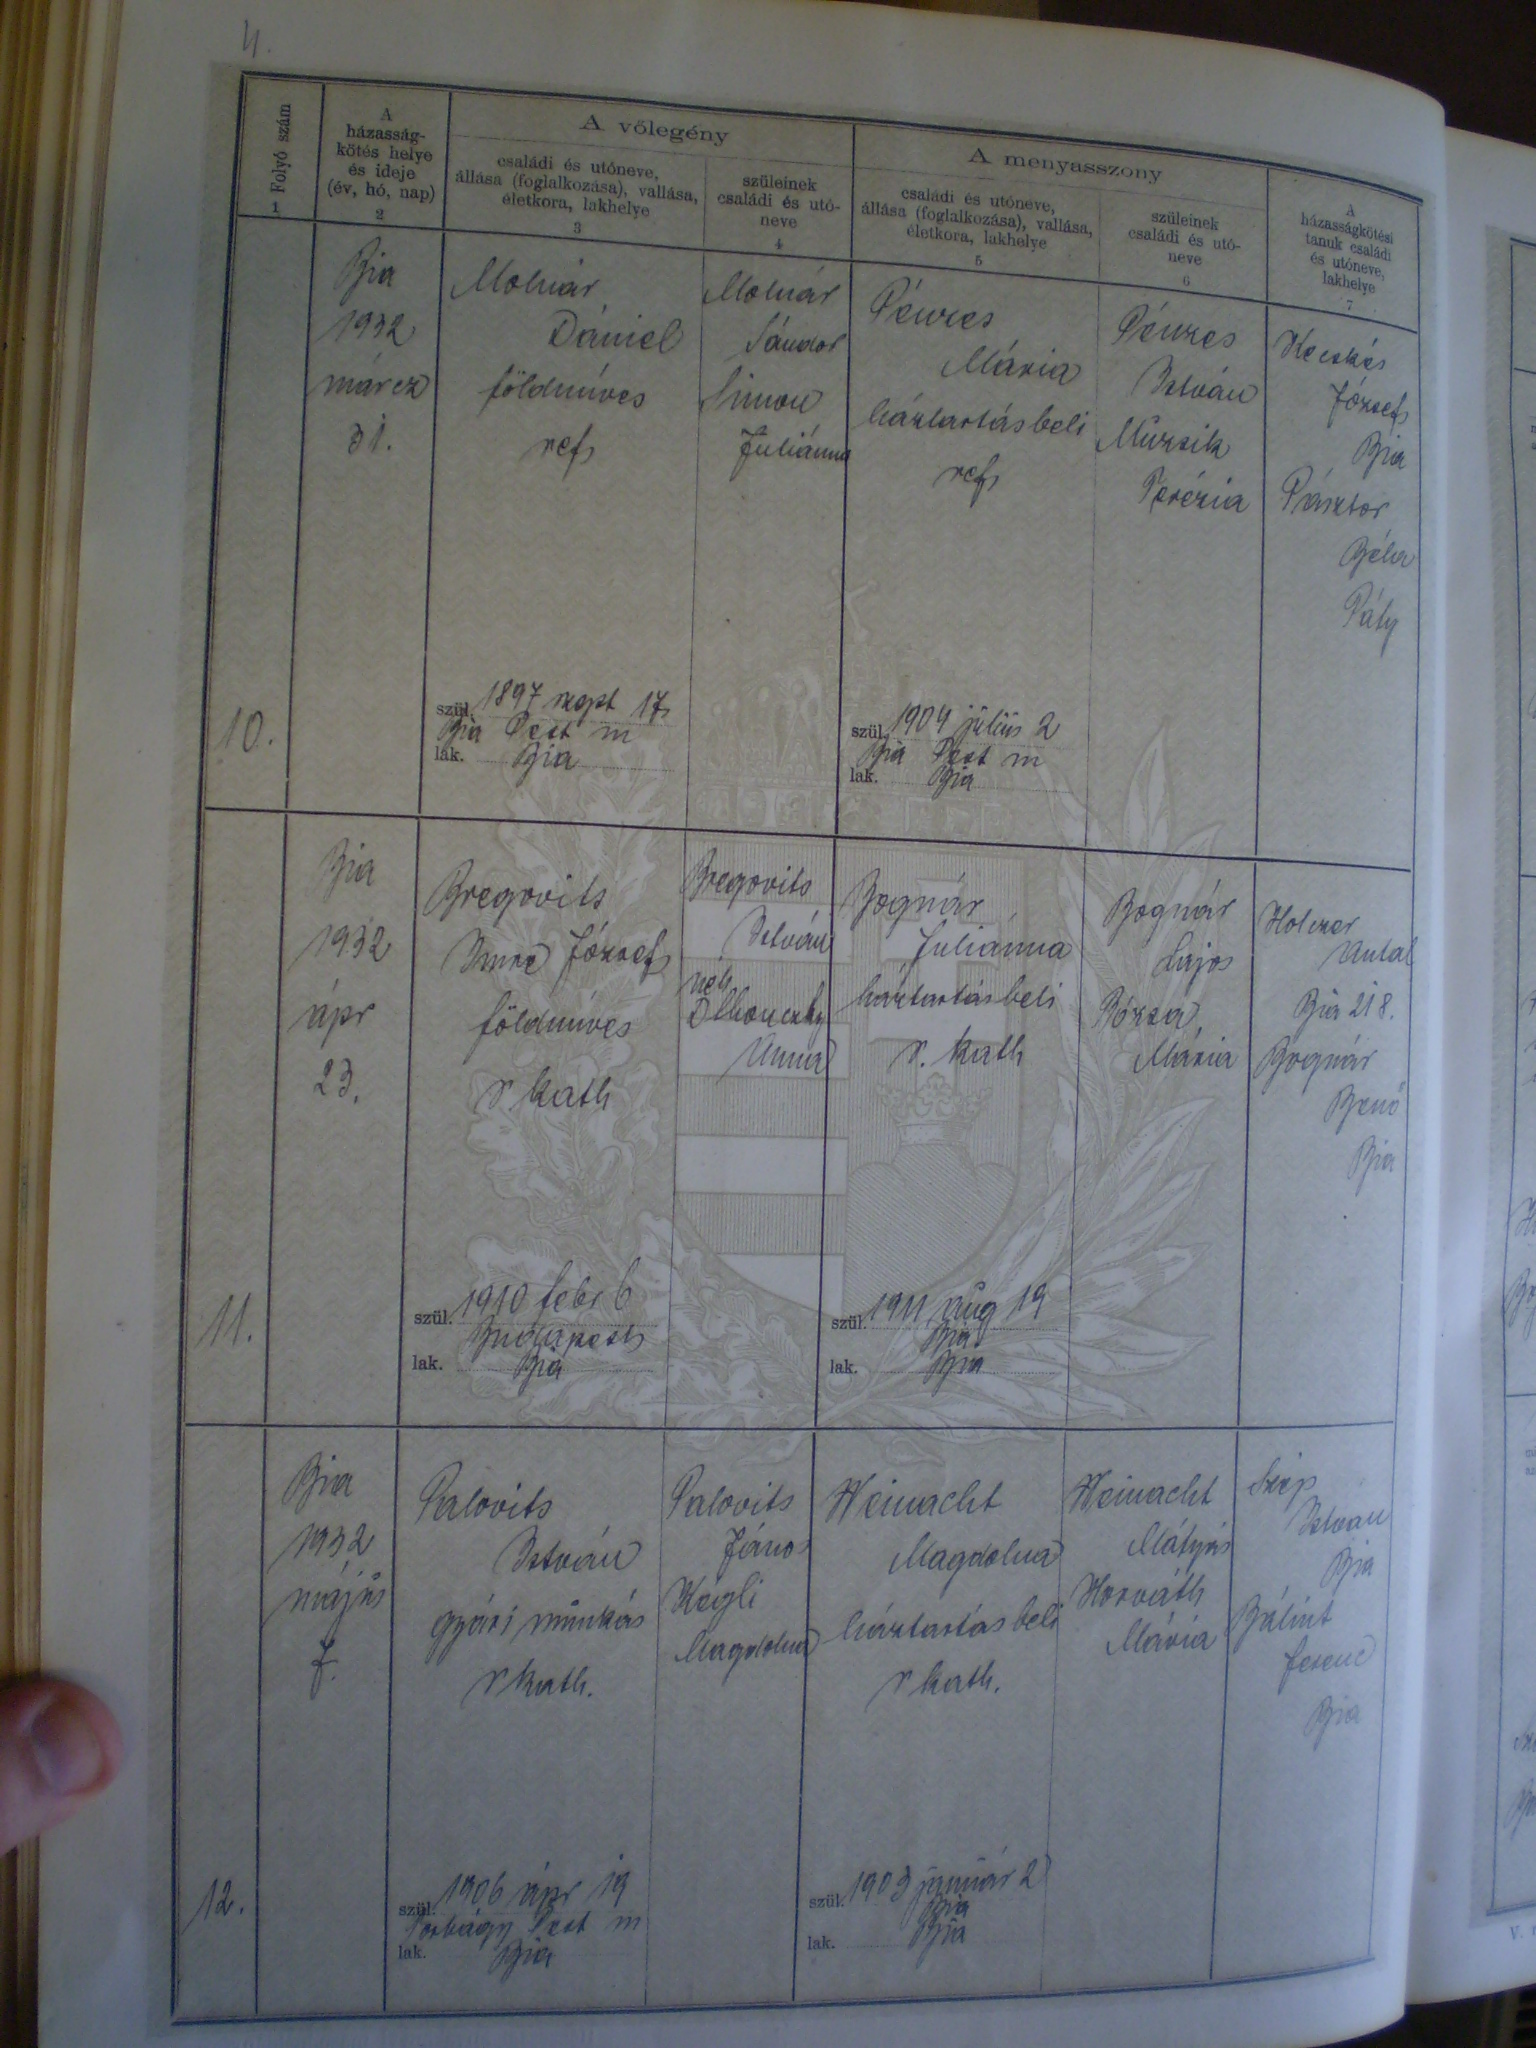 4.
Folyó szám
1
A
házasság-
kötés helye
és ideje
(év, hó, nap)
2
A vőlegény
családi és utóneve,
állása (foglalkozása), vallása,
életkora, lakhelye
3
szüleinek
családi és utó-
neve
4
A menyasszony
családi és utóneve,
állása (foglalkozása), vallása,
életkora, lakhelye
5
szüleinek
családi és utó-
neve
6
A
házasságkötési
tanuk családi
és utóneve,
lakhelye
7
10.
Bia
1932
márcz
31.
Molnár
Dániel
földműves
ref.
szül. 1897 szept 17.
Bia Pest m
lak. Bia
Molnár
Sándor
Simon
Juliánna
Pénzes
Mária
háztartásbeli
ref.
szül. 1904 július 2
Bia Pest m
lak. Bia
Pénzes
István
Muzsik
Terézia
Kecskés
József
Bia
Pásztor
Béla
Páty
11.
Bia
1932
ápr
23.
Bregovits
Imre József
földműves
r kath
szül. 1910 febr 6
Budapest
lak. Bia
Bregovits
István
néh
Anna
Bognár
Juliánna
háztartásbeli
r. kath
szül. 1911 aug 19
Bia
lak. Bia
Bognár
Lajos
Rózsa
Mária
Holczer
Antal
Bia 218.
Bognár
Benő
Bia
12.
Bia
1932
május
7.
Palovits
István
gyári munkás
r kath.
szül. 1906 ápr 19
Torbágy Pest m
lak. Bia
Palovits
János
Kégli
Magdolna
Weinacht
Magdolna
háztartásbeli
r kath.
szül. 1903 január 2
Bia
lak. Bia
Weinacht
Mátyás
Horváth
Mária
Szép
István
Bia
Bálint
Ferenc
Bia